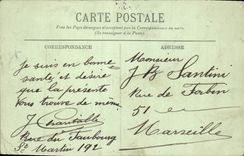 CARTE POSTALE
Tous les Pays étrangers n'acceptent pas la Correspondance au recto.
(Se renseigner à la Poste)
CORRESPONDANCE
ADRESSE
Je suis en bonne
santé et désire
que la présente
vous trouve de même.
J. Chantalle
Rue du Faubourg
St Martin 192
Monsieur
J B Santini
Rue de Forbin
51
Marseille